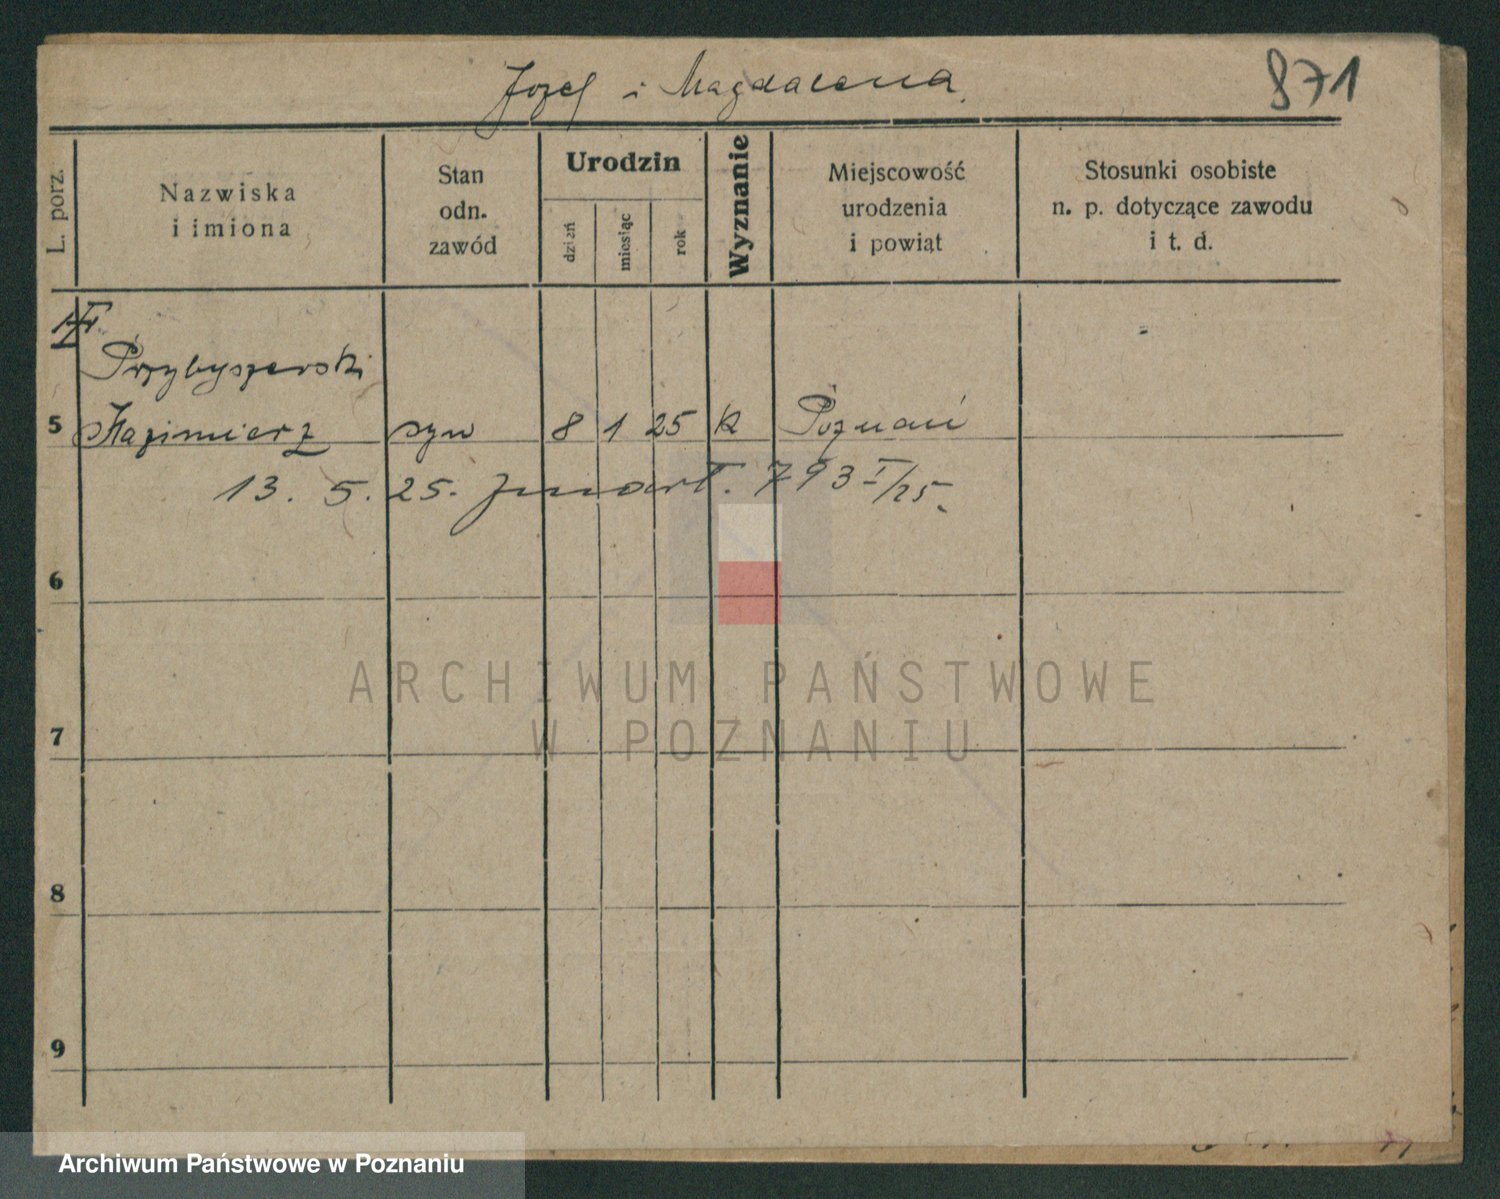 Jozef i Magdalena
871
L. porz.
Nazwiska
i imiona
Stan
odn.
zawód
Urodzin
dzień
miesiąc
rok
Wyznanie
Miejscowość
urodzenia
i powiąt
Stosunki osobiste
n. p. dotyczące zawodu
i t. d.
Przybyszewski
5 Kazimierz syn 8 1 25 k Poznań
13. 5. 25. 793 I/25.
6
ARCHIWUM PAŃSTWOWE
W POZNANIU
7
8
9
Archiwum Państwowe w Poznaniu